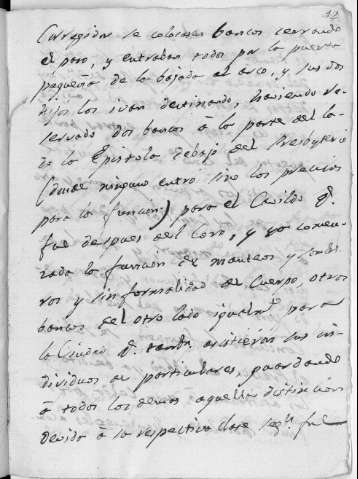 Corregidor se colocasen bancos cerrando
el paso, y entraban todos por la puerta
pequeña de la bajada al arco, y sus dos
hijos los ivan destinando, haviendo re-
servado dos bancos á la parte del la-
do la Epistola debajo del Presbyterio
(donde ninguno entró sino los precisos
para la funcion) para el Cavildo q.
fue despues del Coro, y ya comen-
zada la funcion de manteos y
y sin formalidad de Cuerpo, otros
bancos del otro lado igualm.te para
la Ciudad q. asistieron sus in-
dividuos de particulares, guardando
á todos los demas aquella distincion
devida á la respectiva clase